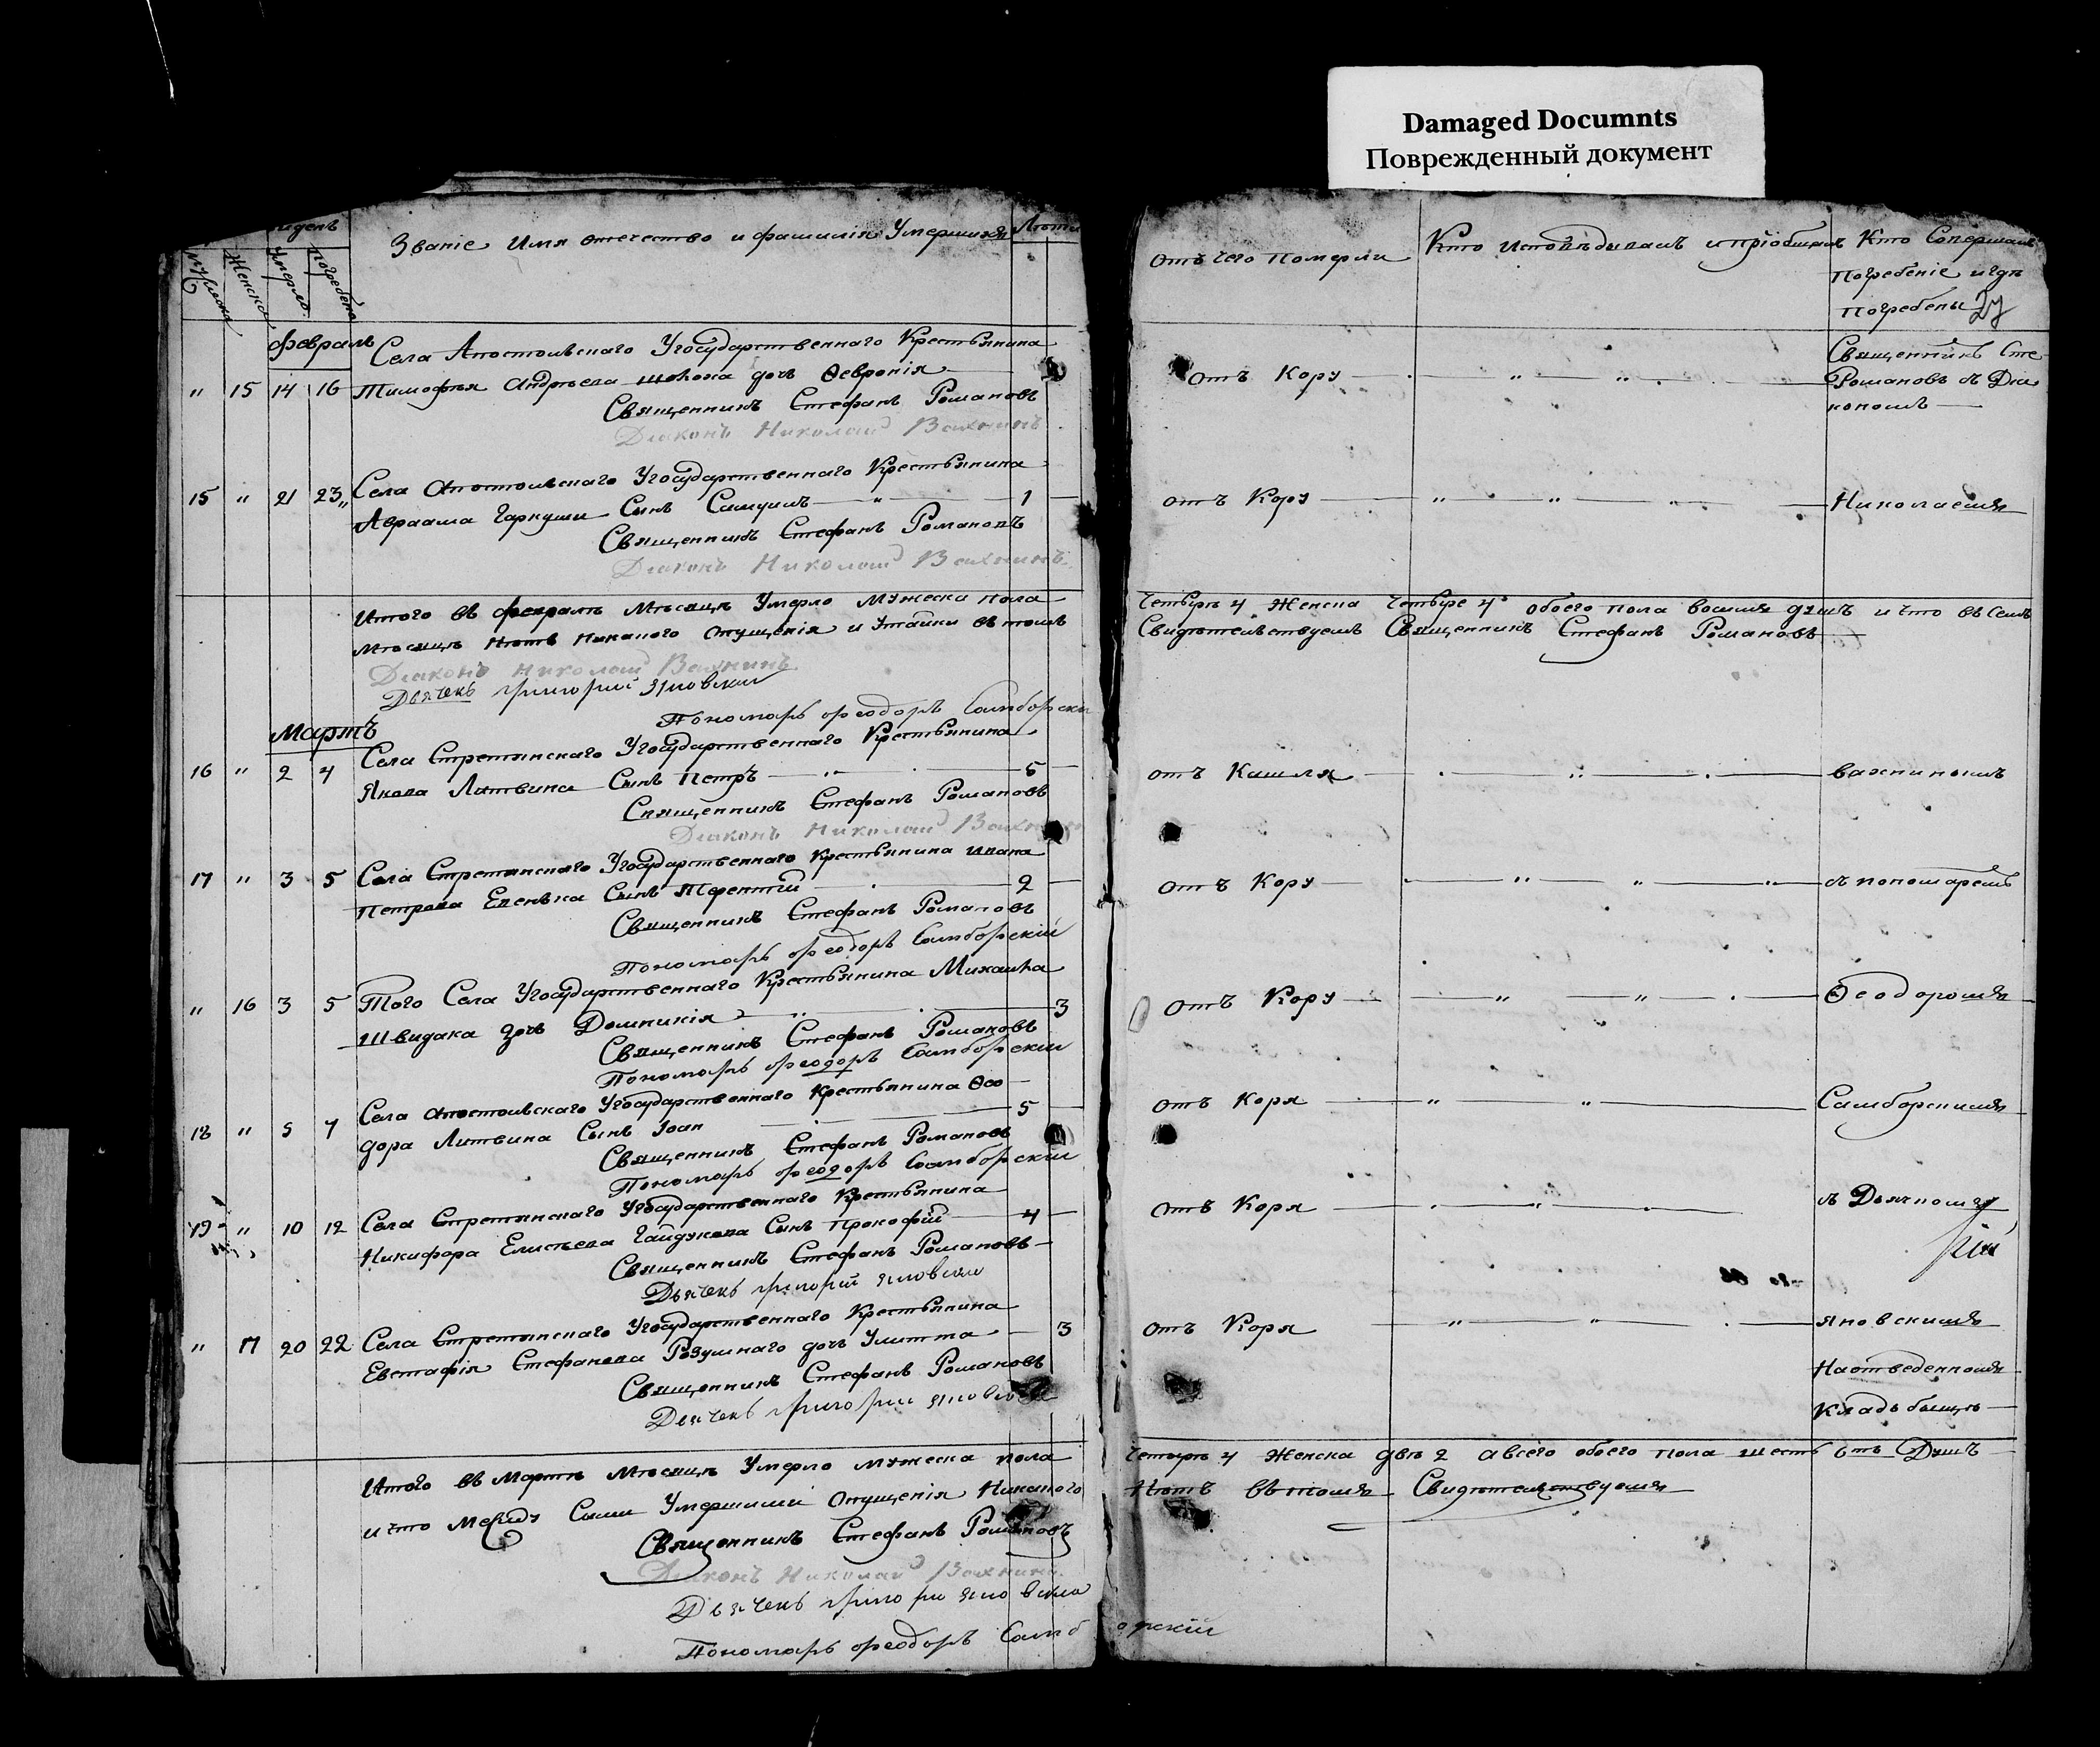 Damaged Documnts
Поврежденный документ
Званіе Имя отечество и фамилія Умершихъ
Лѣта
Женска
Умерло
погребено
отъ чего померли
Кто исповѣдывалъ и пріобщалъ
Кто Совершалъ
погребеніе и гдѣ
погребены
февраль
Села Апостольскаго Угосударственнаго Крестьянина
" 15 14 16 Тимофѣя Андрѣева дочь Ѳевронія
Священникъ Стефанъ Романовъ
Діаконъ Николай Вахнинъ
отъ Кору " "
Священникъ Сте
Романовъ съ Діа
кономъ
Села Апостольскаго Угосударственнаго Крестьянина
15 " 21 23 Авраама Гаркуши Сынъ Самуилъ " 1
Священникъ Стефанъ Романовъ
Діаконъ Николай Вахнинъ
отъ Кору " "
Николаемъ
Итого въ февралѣ Мѣсяцѣ Умерло Мужеска пола
Четыре 4 Женска Четыре 4 обоего пола восемь душъ и что въ Семъ
Мѣсяцѣ Нѣтъ Никакого опущенія и Утайки въ томъ
Свидѣтельствуемъ Священникъ Стефанъ Романовъ
Діаконъ Николай Вахнинъ
Дьячекъ Григорий Яновский
Пономарь Феодоръ Самборский
Мартъ
Села Стретинскаго Угосударственнаго Крестьянина
16 " 2 4 Якова Литвина Сынъ Петръ " 5
Священникъ Стефанъ Романовъ
Діаконъ Николай Вахнинъ
отъ Кашля
вахнинымъ
17 " 3 5 Села Стретинскаго Угосударственнаго Крестьянина Ивана
Петрова Сынъ Терентій 2
Священникъ Стефанъ Романовъ
Пономарь Феодоръ Самборскій
отъ Кору " " "
съ пономаремъ
" 16 3 5 Того Села Угосударственнаго Крестьянина Михаила
Швидака дочь Домникія " 3
Священникъ Стефанъ Романовъ
Пономарь Феодоръ Самборскій
отъ Кору " "
Ѳеодоромъ
Села Апостольскаго Угосударственнаго Крестьянина Ѳео
18 " 5 7 дора Литвина Сынъ Іоан 5
Священникъ Стефанъ Романовъ
Пономарь Феодоръ Самборскій
отъ Коря " "
Самборскимъ
19 " 10 12 Села Стретинскаго Угосударственнаго Крестьянина
Никифора Елисѣева Гайдукова Сынъ Прокофій 4
Священникъ Стефанъ Романовъ
Дьячекъ Григорій Яновский
отъ Коря "
съ Дьячкомъ
" 17 20 22 Села Стретинскаго Угосударственнаго Крестьянина
Евстафія Стефанова Розумнаго дочь Улитта 3
Священникъ Стефанъ Романовъ
Дьячекъ Григорий Яновский
отъ Коря " "
Яновскимъ
На отведенномъ
Кладъбыщѣ
Итого въ Мартѣ Мѣсяцѣ Умерло мужеска пола
Четыре 4 Женска двѣ 2 а всего обоего пола шесть 6ть Душъ
и что Между Сими Умершими Опущенія Никакого
Нѣтъ въ томъ Свидѣтельствуемъ
Священникъ Стефанъ Романовъ
Діаконъ Николай Вахнинъ
Дьячекъ Григорий Яновский
Пономарь Феодоръ Самборскій